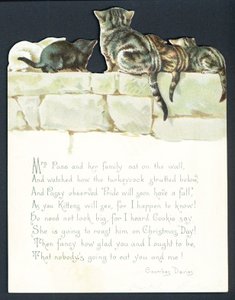 Mrs Puss and her family sat on the wall,
And watched how the turkeycock strutted below,
And Pussy observed "Pride will soon have a fall,
As you Kittens will see, for I happen to know!
He need not look big, for I heard Cookie say
She is going to roast him on Christmas Day!
Then fancy how glad you and I ought to be,
That nobody's going to eat you and me!